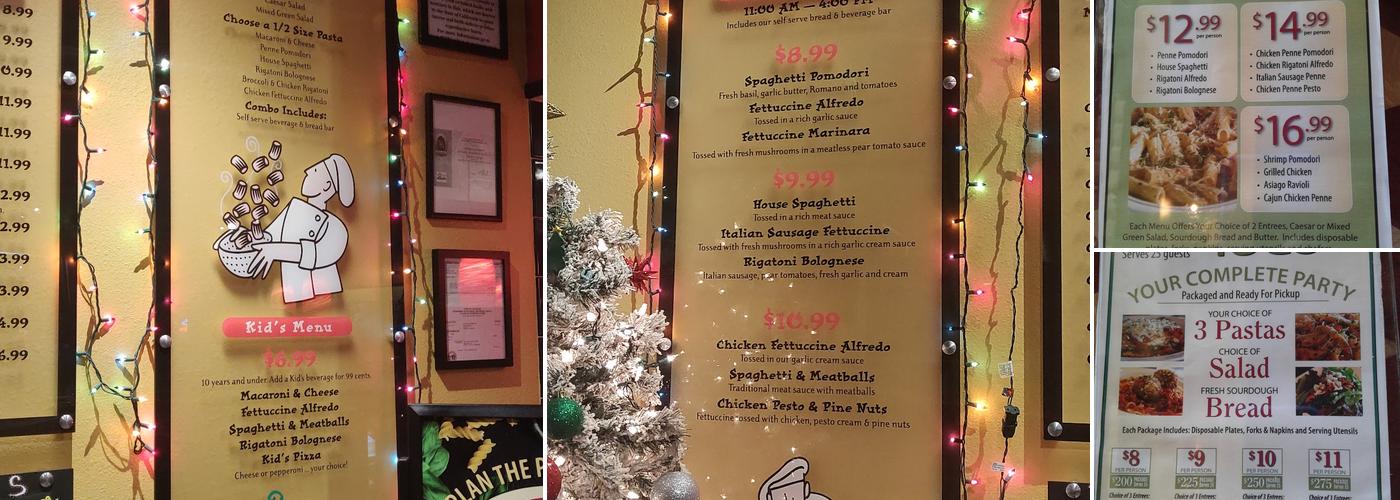 8.99
9.99
0.99
11.99
11.99
11.99
2.99
2.99
3.99
3.99
4.99
6.99
S
Caesar Salad
Mixed Green Salad
Choose a 1/2 Size Pasta
Macaroni & Cheese
Penne Pomodori
House Spaghetti
Rigatoni Bolognese
Broccoli & Chicken Rigatoni
Chicken Fettuccine Alfredo
Combo Includes:
Self serve beverage & bread bar
Kid's Menu
$6.99
10 years and under. Add a Kid's beverage for 99 cents.
Macaroni & Cheese
Fettuccine Alfredo
Spaghetti & Meatballs
Rigatoni Bolognese
Kid's Pizza
Cheese or pepperoni ... your choice!
PLAN THE P
11:00 AM – 4:00 PM
Includes our self serve bread & beverage bar
$8.99
Spaghetti Pomodori
Fresh basil, garlic butter, Romano and tomatoes
Fettuccine Alfredo
Tossed in a rich garlic sauce
Fettuccine Marinara
Tossed with fresh mushrooms in a meatless pear tomato sauce
$9.99
House Spaghetti
Tossed in a rich meat sauce
Italian Sausage Fettuccine
Tossed with fresh mushrooms in a rich garlic cream sauce
Rigatoni Bolognese
Italian sausage, pear tomatoes, fresh garlic and cream
$10.99
Chicken Fettuccine Alfredo
Tossed in our garlic cream sauce
Spaghetti & Meatballs
Traditional meat sauce with meatballs
Chicken Pesto & Pine Nuts
Fettuccine tossed with chicken, pesto cream & pine nuts
$12.99
per person
• Penne Pomodori
• House Spaghetti
• Rigatoni Alfredo
• Rigatoni Bolognese
$14.99
per person
• Chicken Penne Pomodori
• Chicken Rigatoni Alfredo
• Italian Sausage Penne
• Chicken Penne Pesto
$16.99
per person
• Shrimp Pomodori
• Grilled Chicken
• Asiago Ravioli
• Cajun Chicken Penne
Each Menu Offers Your Choice of 2 Entrees, Caesar or Mixed
Green Salad, Sourdough Bread and Butter. Includes disposable
Serves 25 guests
YOUR COMPLETE PARTY
Packaged and Ready For Pickup
YOUR CHOICE OF
3 Pastas
CHOICE OF
Salad
FRESH SOURDOUGH
Bread
Each Package Includes: Disposable Plates, Forks & Napkins and Serving Utensils
$8
PER PERSON
$200
$9
PER PERSON
$225
$10
PER PERSON
$250
$11
PER PERSON
$275
Choice of 3 Entrees:
Choice of 3 Entrees:
Choice of 3 Entrees:
Choice of 3 Entrees: